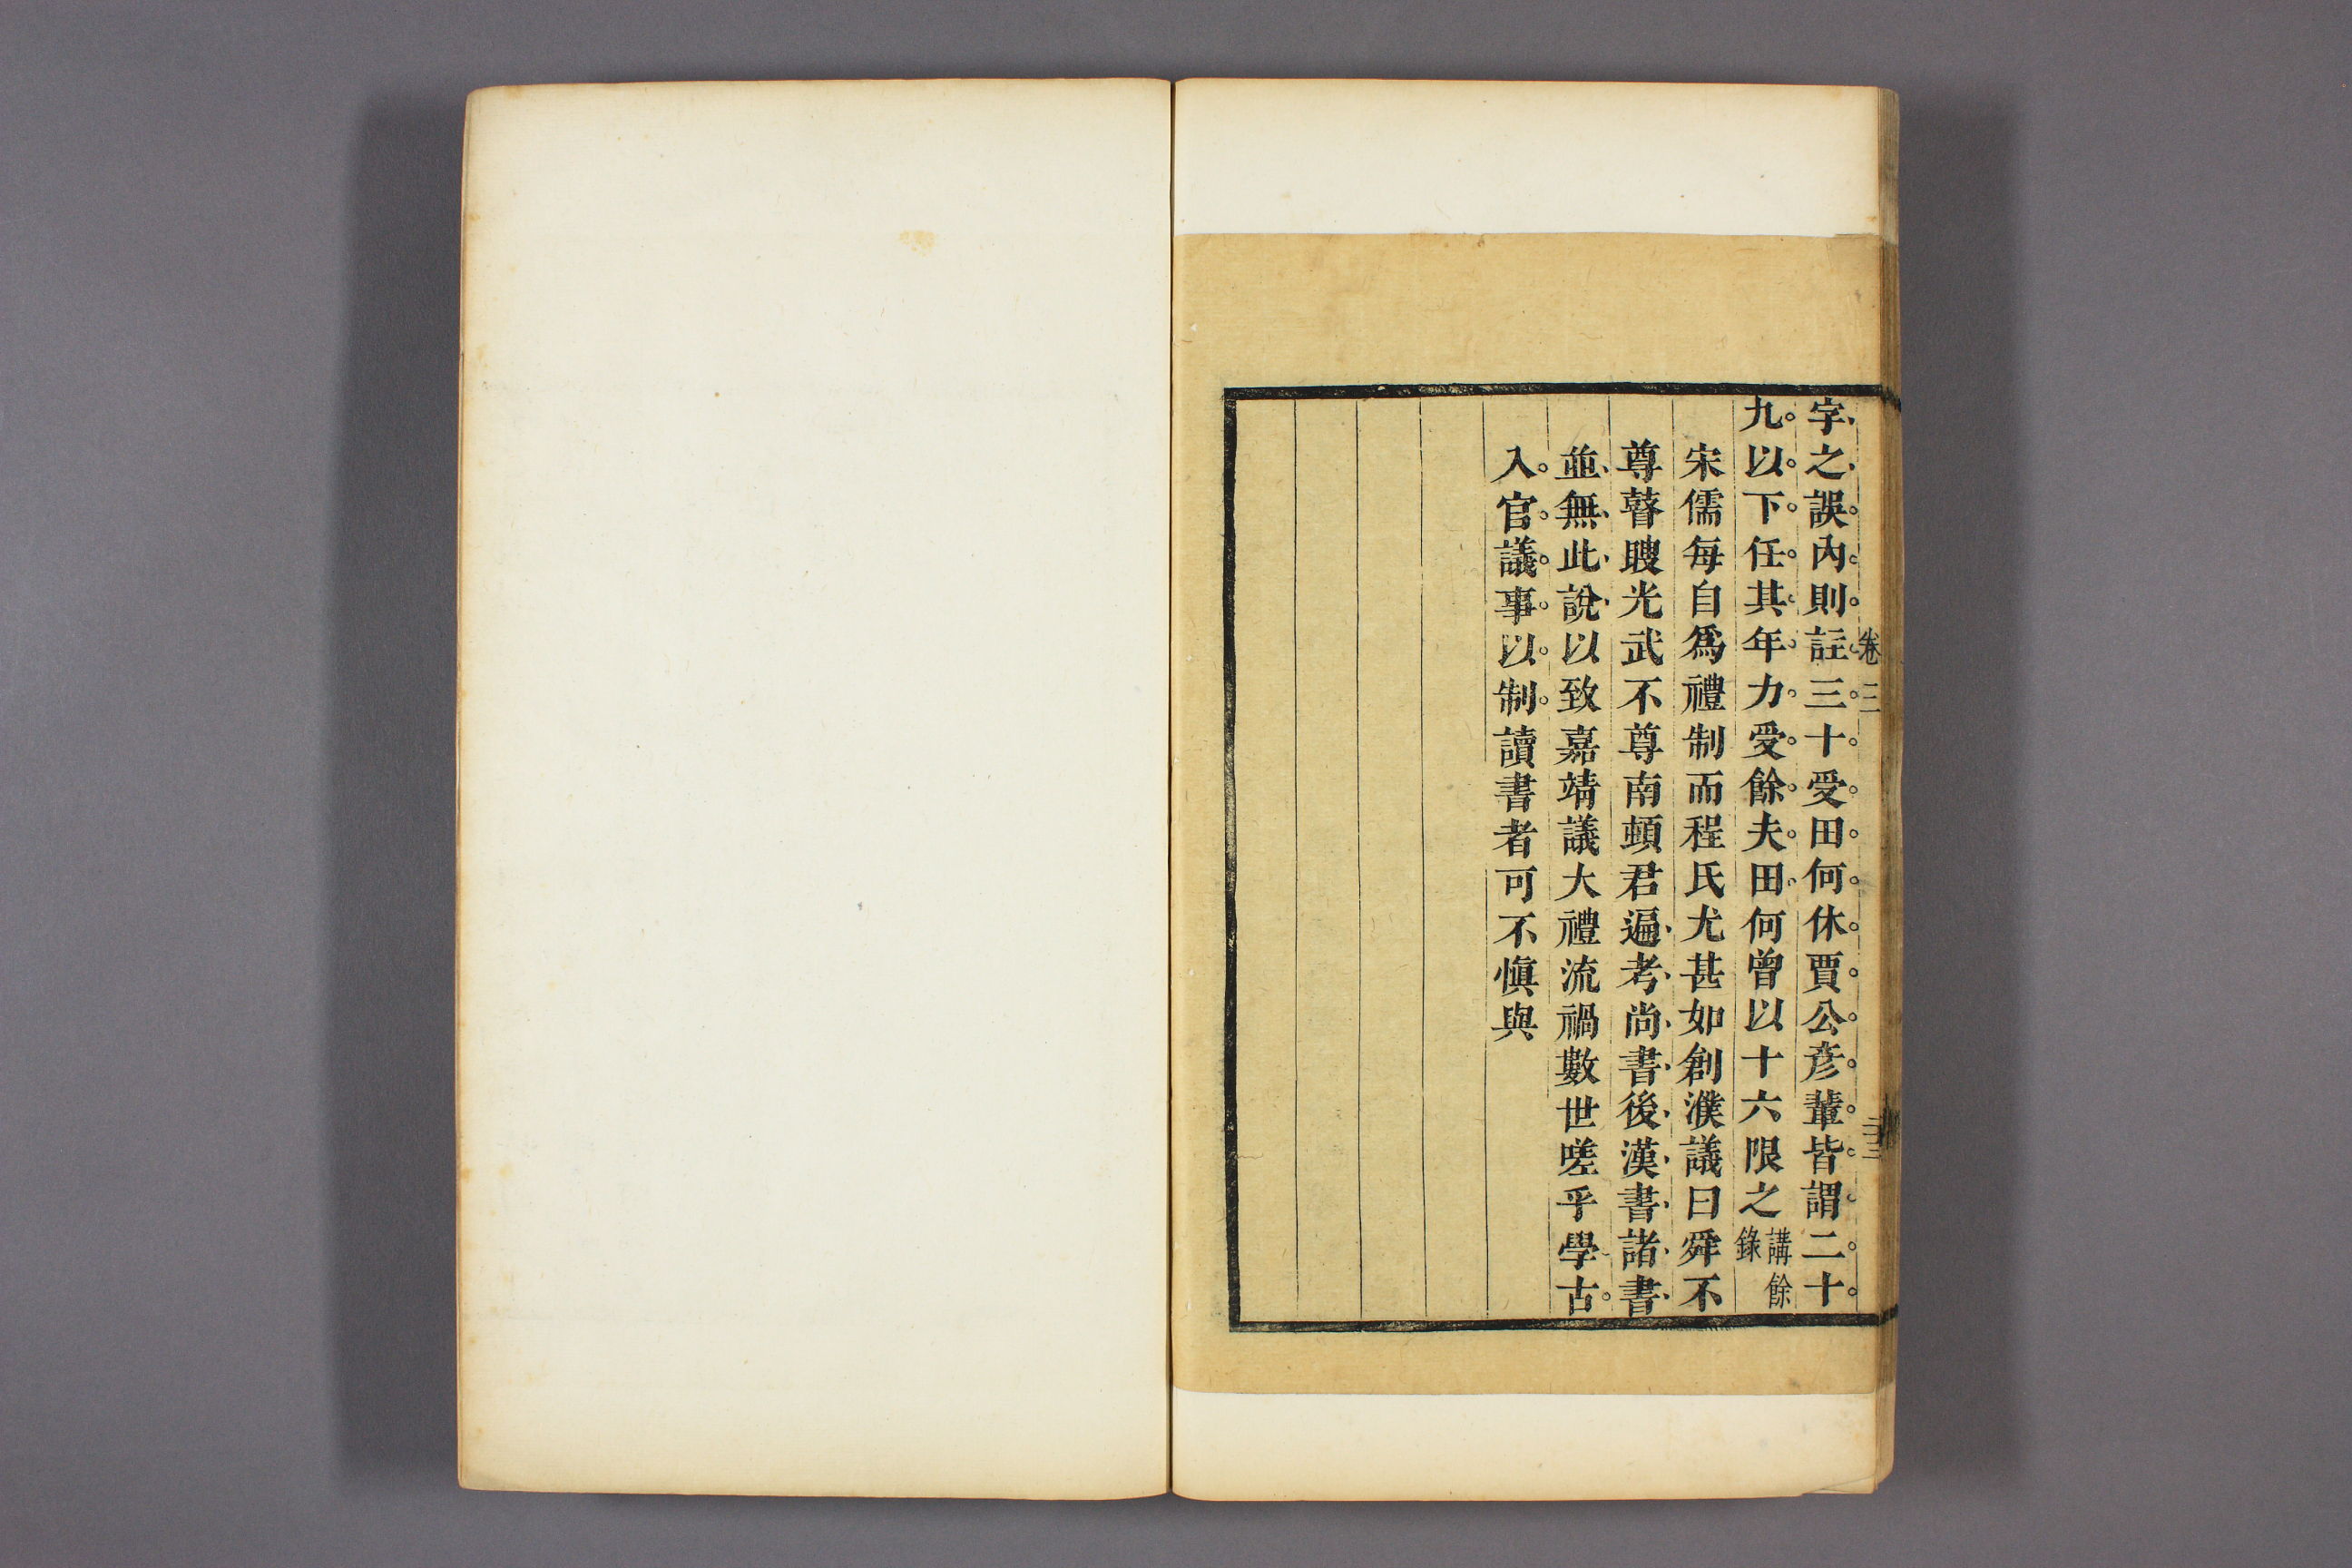 卷三
字之誤內則註三十受田何休賈公彥輩皆謂二十
九以下任其年力受餘夫田何曾以十六限之講餘錄
宋儒每自爲禮制而程氏尤甚如創濮議曰舜不
尊瞽瞍光武不尊南頓君遍考尚書後漢書諸書
並無此說以致嘉靖議大禮流禍數世嗟乎學古
入官議事以制讀書者可不愼與